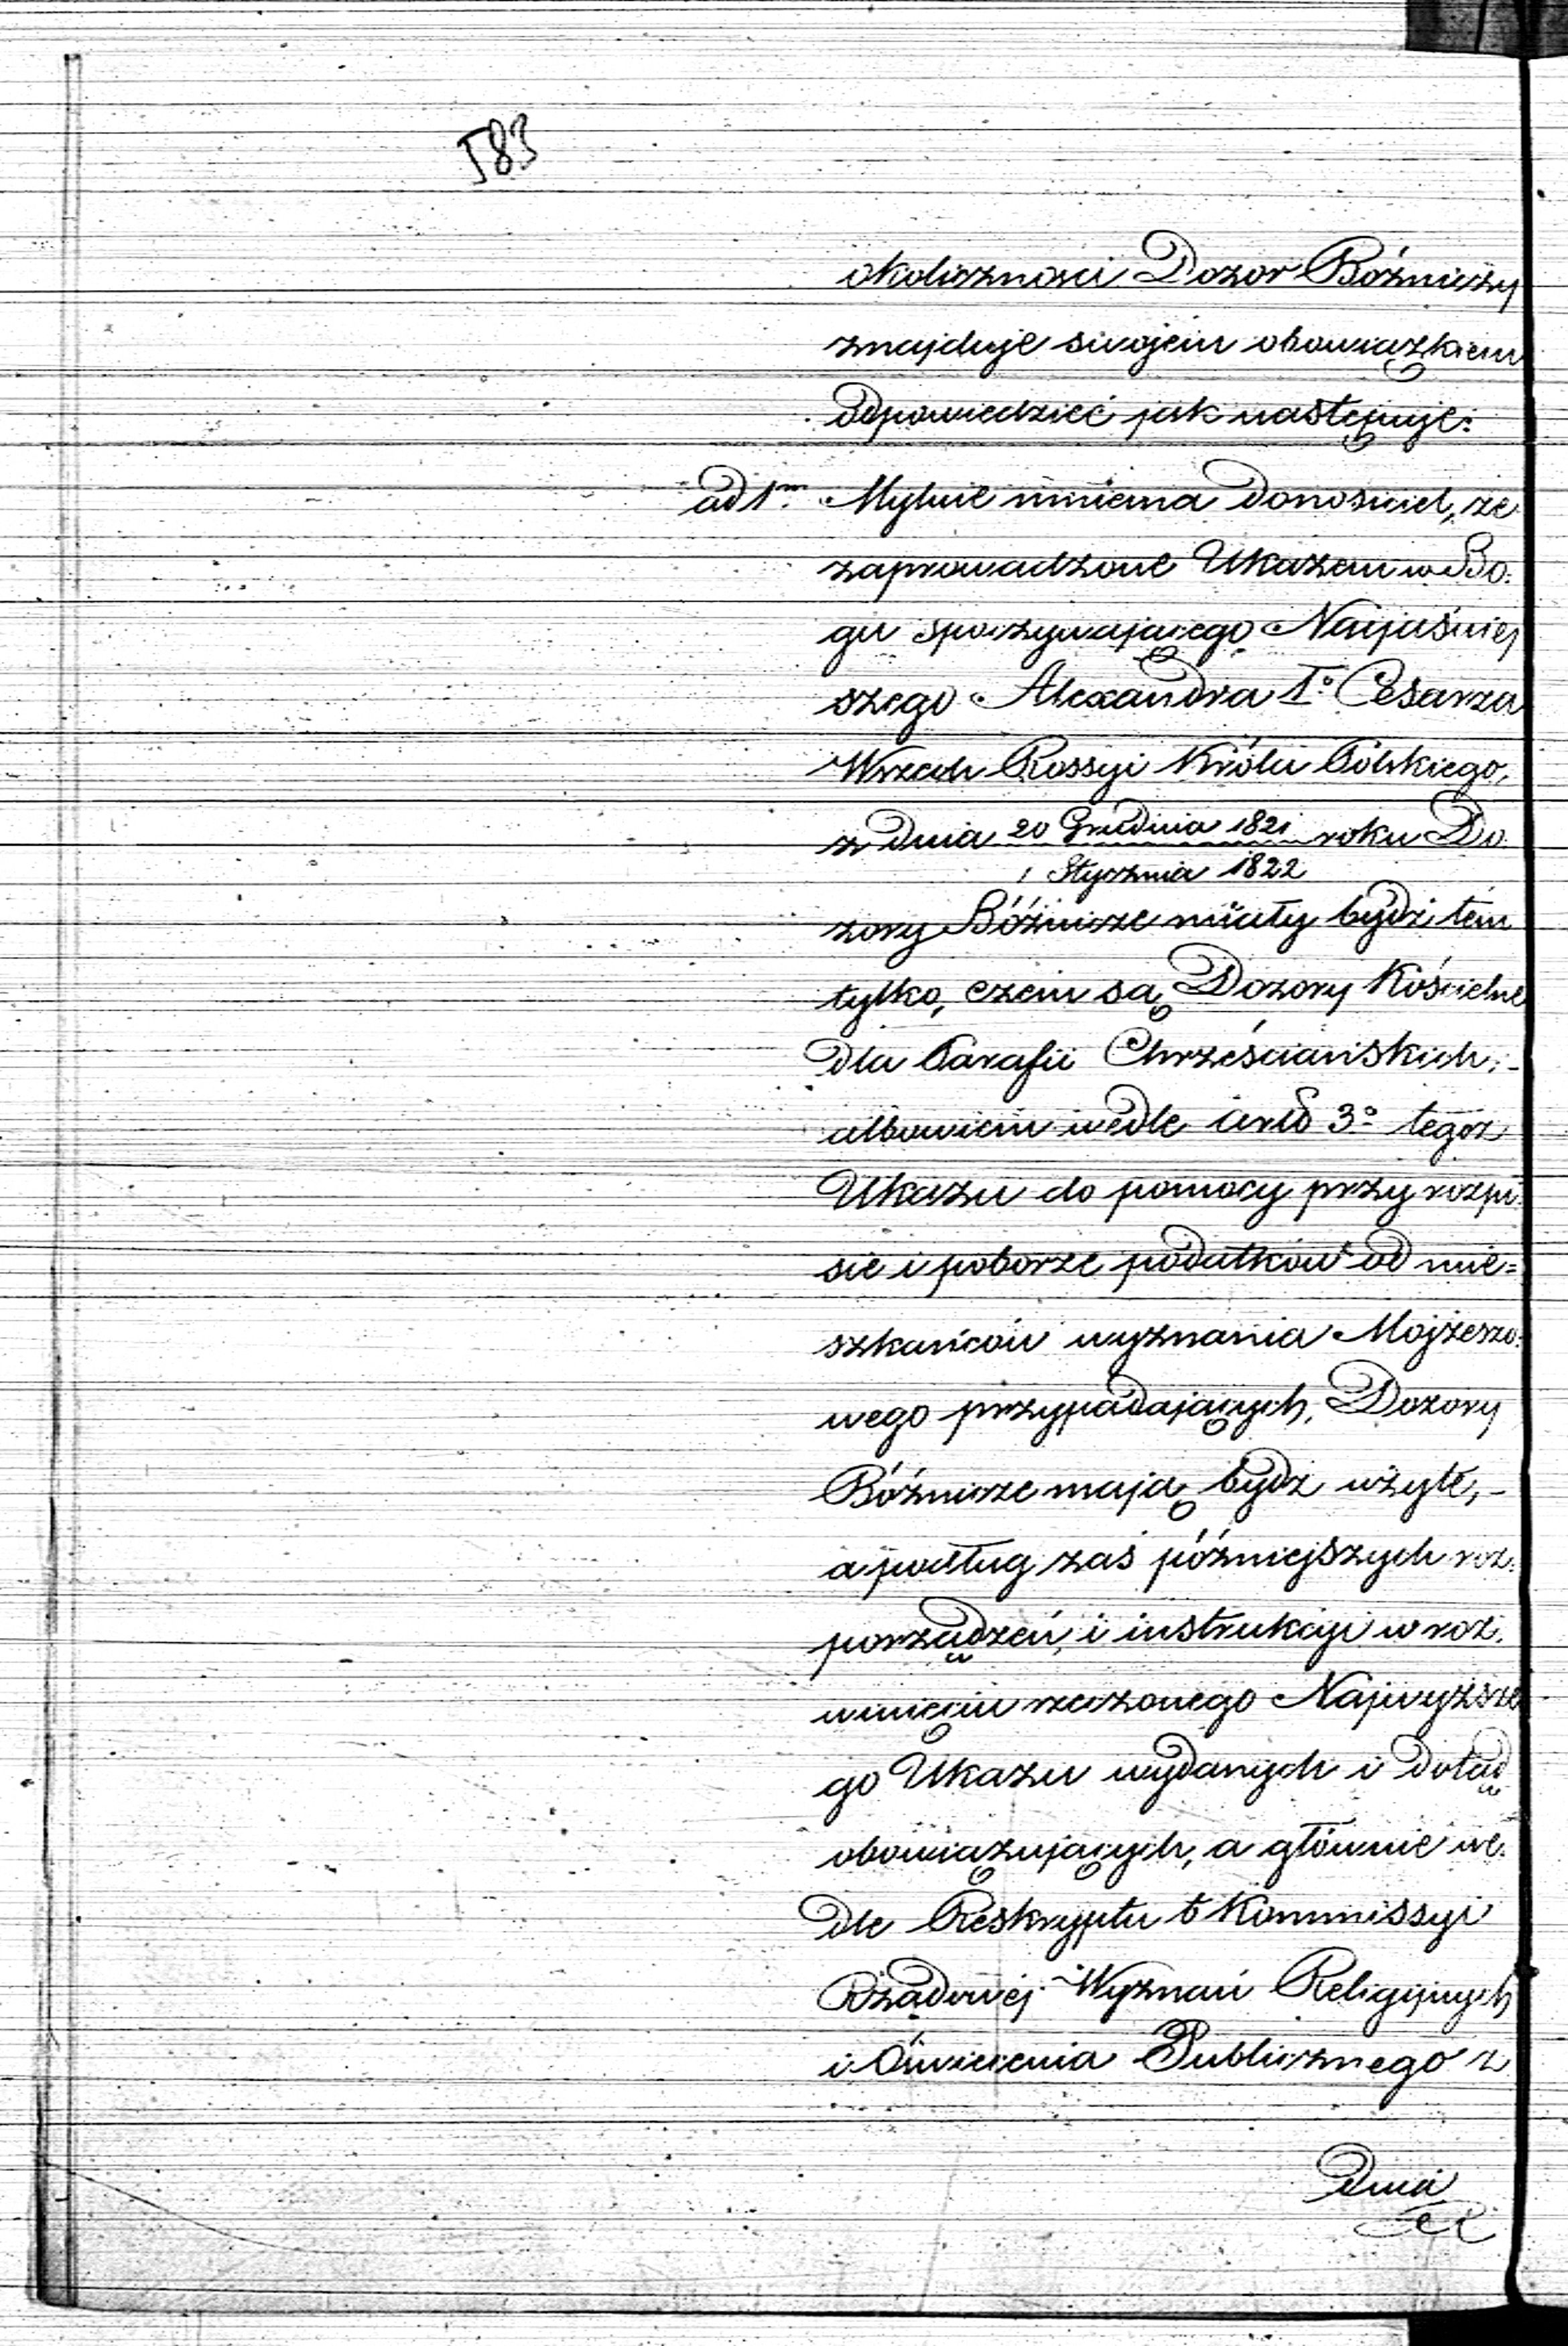 183
okoliczności Dozor Bóźniczy
znajduje swojem obowiązkiem
odpowiedzieć jak następuje:
ad 1m. Mylnie mniema donosiciel, że
zaprowadzone Ukazem w Bo-
gu spoczywającego Najjaśniej
szego Alexandra Io Cesarza
Wszech Rossyi Króla Polskiego,
z dnia 20 Grudnia 1821 roku Do
1 Stycznia 1822
zory Bóźnicze miały bydź tem
tylko, czem są Dozory Kościelne
dla Parafii Chrześciańskich; -
albowiem wedle art. 3o tegoż
Ukazu do pomocy przy rozpi-
sie i poborze podatków od mie=
szkańców wyznania Mojżeszo-
wego przypadających, Dozory
Bóźnicze mają bydź użyte, -
a podług zaś późniejszych roz-
porządzeń, i instrukcyi w roz-
winięciu rzeczonego Najwyższe
go Ukazu wydanych i dotąd
obowiązujących, a głównie we-
dle Reskryptu b Kommissyi
Rządowéj Wyznań Religijnych
i Oświecenia Publicznego z
dnia